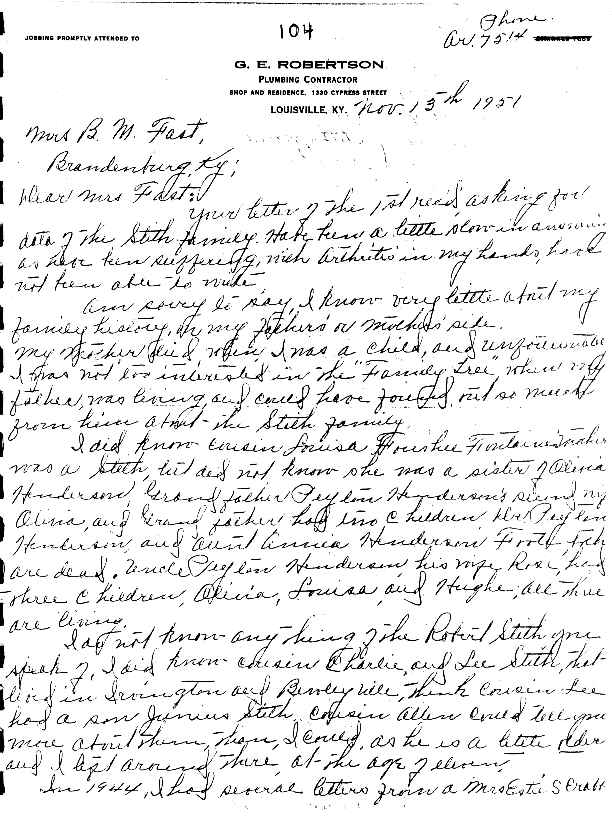 104
Phone
Ar. 7514
JOBBING PROMPTLY ATTENDED TO
G. E. ROBERTSON
PLUMBING CONTRACTOR
SHOP AND RESIDENCE, 1330 CYPRESS STREET
LOUISVILLE, KY. Nov. 15th 1951
Mrs B. M. Fast,
Brandenburg, Ky;
Dear Mrs Fast:
Your letter of the 1st rec'd, asking for
data of the Stith family. Have been a little slow in
as have been suffering, with Arthritis in my hands, have
not been able to write.
Am sorry to say, I know very little about my
family history, on my father's or mother's side.
My Mother died, when I was a child, and unfortunate
I was not too interested in the "Family Tree" when my
father, was living, and could have found out so much
from him about the Stith family.
I did know cousin Louisa Foushee Fontaine's mother
was a Stith, but did not know she was a sister of Olivia
Henderson, Grand father Peyton Henderson's
Olivia, and Grand father had two children, Peyton
Henderson, and aunt Annia Henderson Foote, both
are dead. Uncle Peyton Henderson, his wife Rose, had
three children, Olivia, Louisa, and Hughe, all three
are living.
I do not know any thing of the Robert Stith you
speak of, I did know cousin Charlie, and Lee Stith, that
lived in Irvington and Bewleyville, think cousin Lee
had a son Junius Stith. Cousin Allen could tell you
more about them, than, I could, as he is a little older
and I left around there, at the age of eleven.
In 1944, I had several letters from a Mrs Estie S Crabb